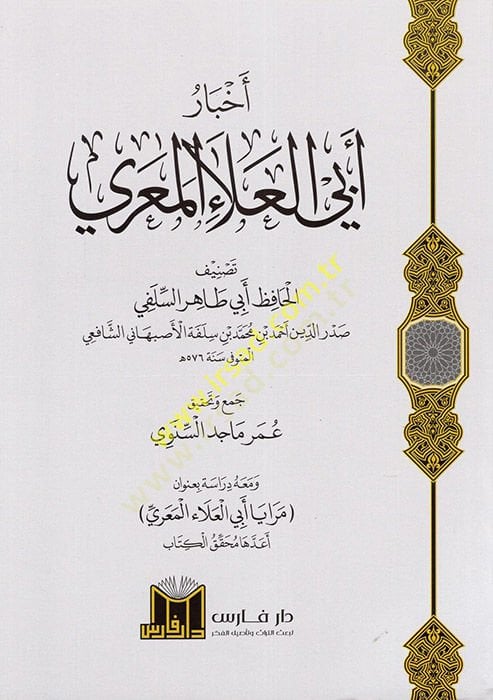 أَخْبَارُ
أَبِي العَلَاءِ المَعَرِّي
تَصْنِيف
الحَافِظِ أَبِي طَاهِر السِّلَفِي
صَدْرِ الدِّينِ أَحْمَد بْنِ مُحَمَّد بْنِ سِلَفَة الأَصْبِهَانِي الشَّافِعِي
المتوفى سنة ٥٧٦ه
جَمع وَتحقيق
عُمَر مَاجد السِّنَوِي
وَمَعَهُ دِرَاسَة بِعنوَان
(مَرَايَا أَبِي العَلَاء المَعَرِّي)
أَعَدَّهَا مُحَقِّقُ الكِتَاب
دار فارس
دار فارس
لبعث التراث وتأصيل الفكر
www.irsad.com.tr